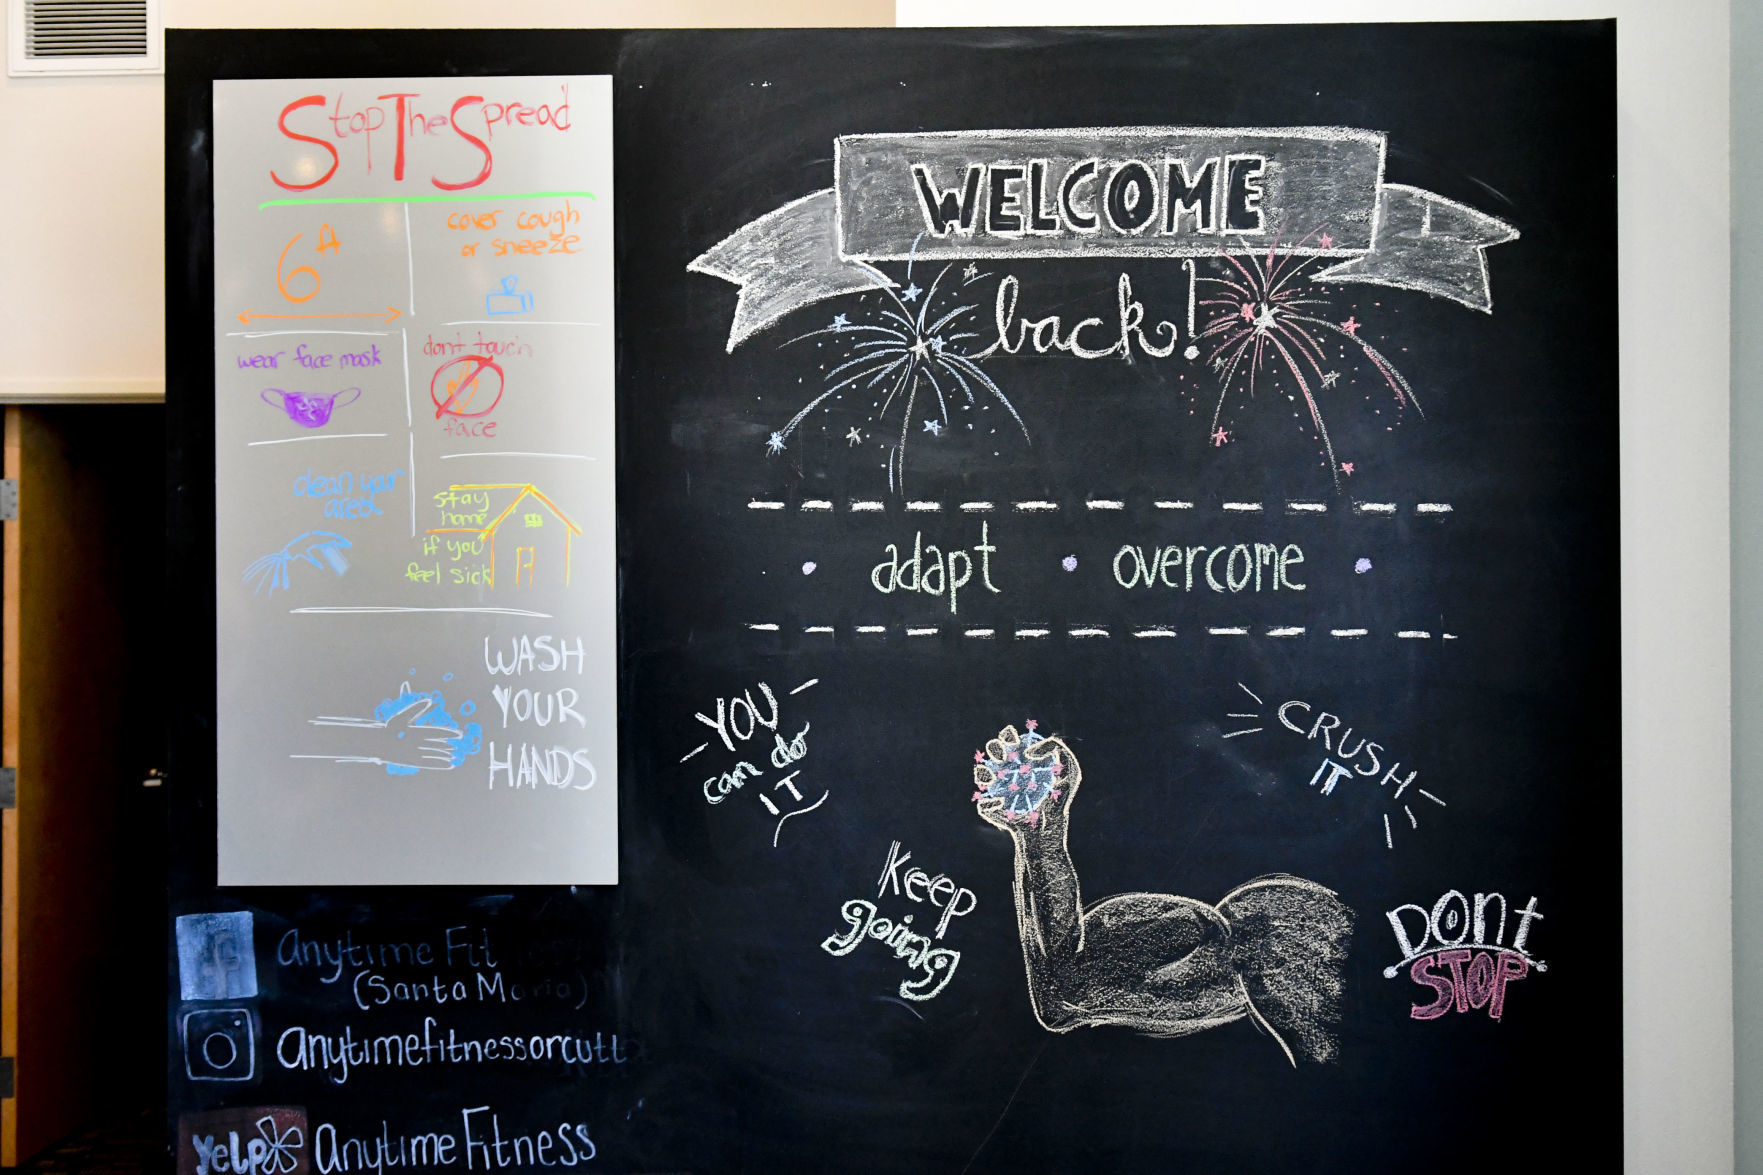 Stop The Spread
6 ft
cover cough
or sneeze
wear face mask
dont touch
face
clean your
area.
stay
home
if you
feel sick
WASH
YOUR
HANDS
f
Anytime Fit
(Santa Maria)
anytimefitnessorcutt
yelp Anytime Fitness
WELCOME
back!
• adapt • overcome •
YOU
can do
IT
CRUSH
IT
Keep
going
DONt
STOP